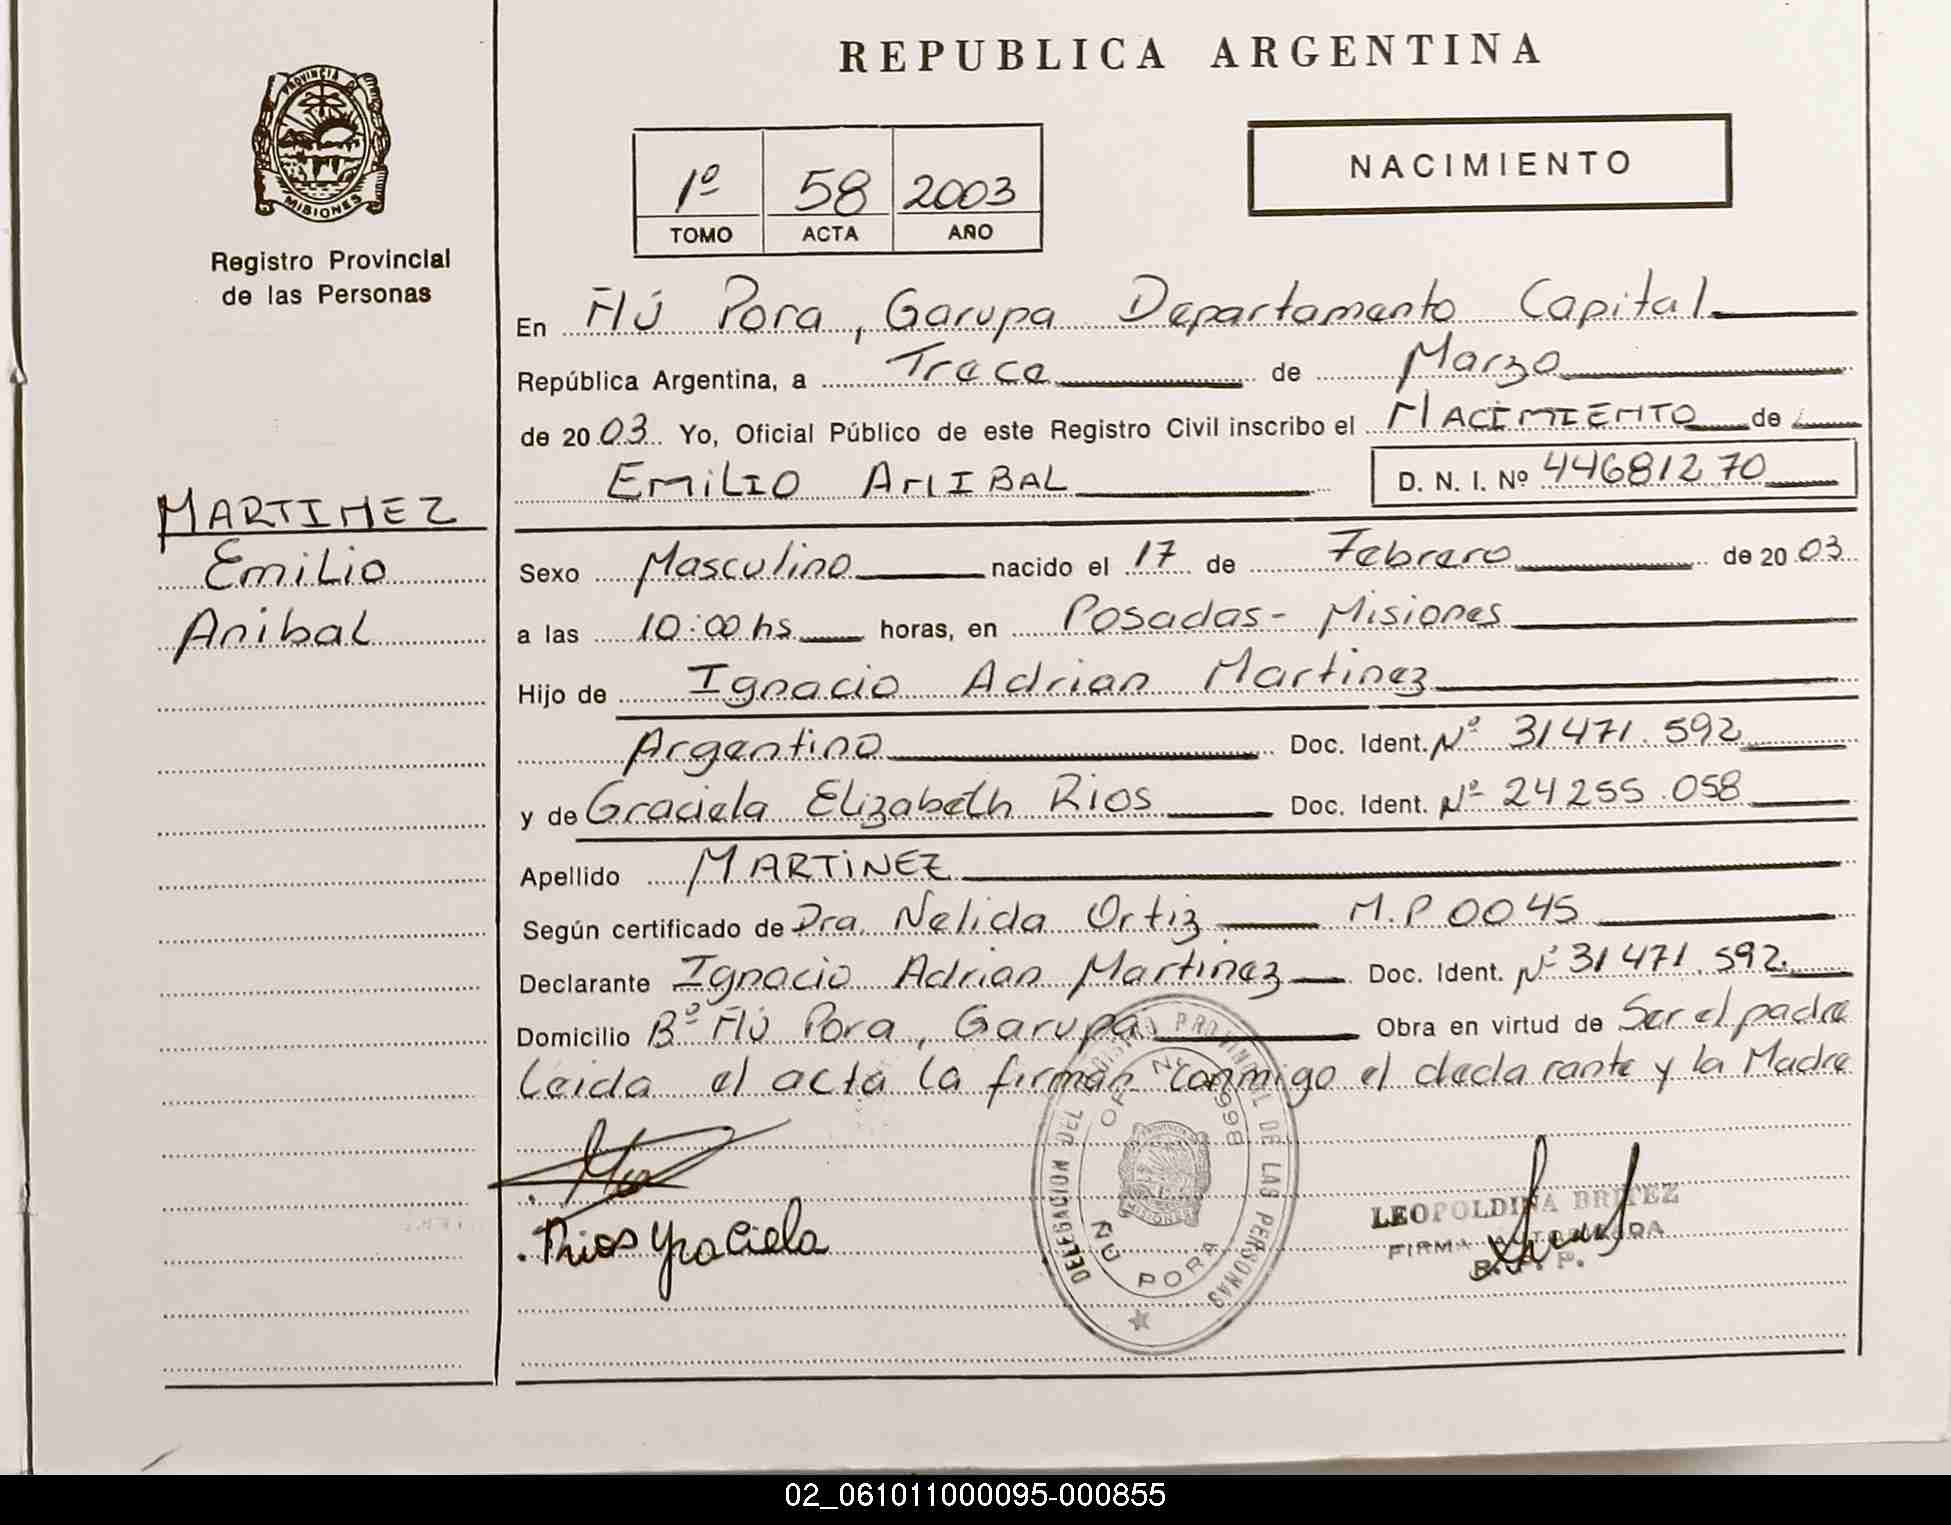 REPUBLICA ARGENTINA
PROVINCIA DE
MISIONES
Registro Provincial
de las Personas
1º 58 2003
TOMO ACTA AÑO
NACIMIENTO
En Ñú Pora, Garupa Departamento Capital
República Argentina, a Trece de Marzo
de 2003 Yo, Oficial Público de este Registro Civil inscribo el NACIMIENTO de
EMILIO ANIBAL D. N. I. Nº 44681270
MARTINEZ
Emilio
Anibal
Sexo Masculino nacido el 17 de Febrero de 2003
a las 10:00 hs horas, en Posadas - Misiones
Hijo de Ignacio Adrian Martinez
Argentino Doc. Ident. Nº 31471.592
y de Graciela Elizabeth Rios Doc. Ident. Nº 24255.058
Apellido MARTINEZ
Según certificado de Dra. Nelida Ortiz M.P 0045
Declarante Ignacio Adrian Martinez Doc. Ident. Nº 31471.592
Domicilio Bº Ñú Pora, Garupa Obra en virtud de Ser el padre
Leida el acta la firman conmigo el declarante y la Madre
Rios Graciela
DELEGACION DEL REGISTRO PROVINCIAL DE LAS PERSONAS
ÑU PORA
MISIONES
LEOPOLDINA BRITEZ
FIRMA AUTORIZADA
R. P. P.
02_061011000095-000855